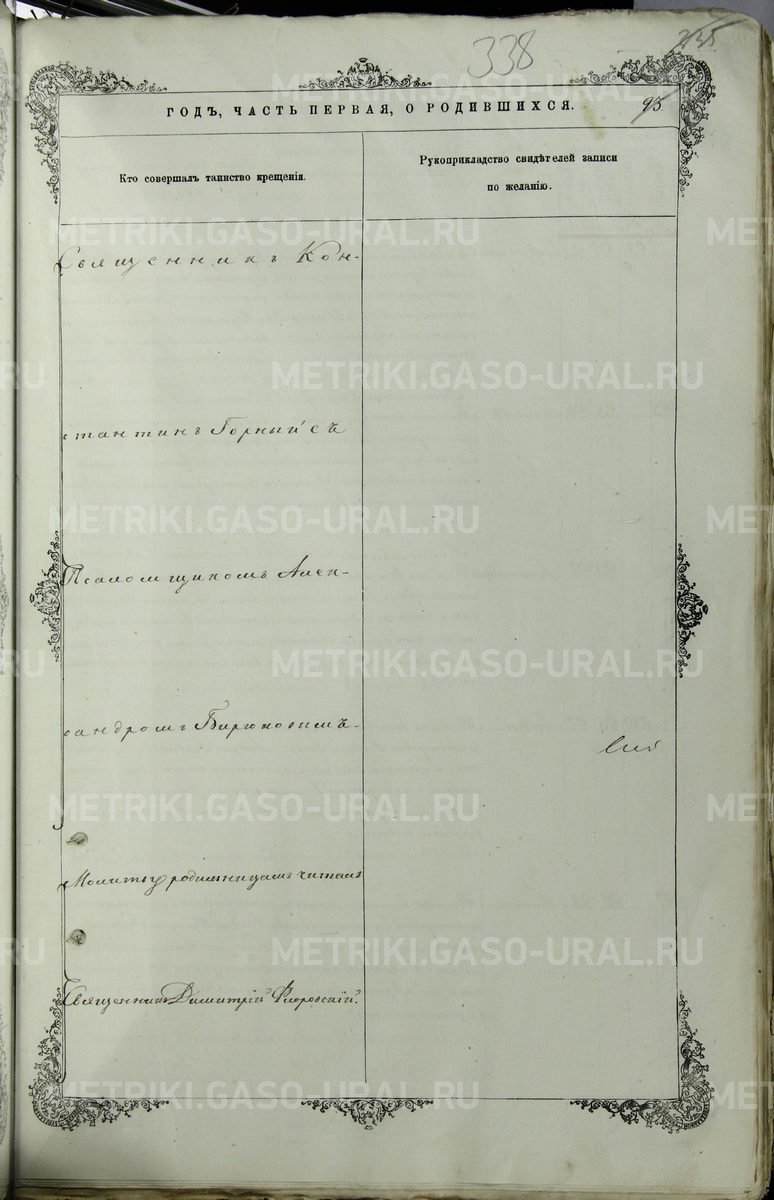 338
235
95
ГОДЪ, ЧАСТЬ ПЕРВАЯ, О РОДИВШИХСЯ.
Кто совершалъ таинство крещенія.
Рукоприкладство свидѣтелей записи
по желанію.
Священникъ Кон-
стантинъ Горныйсъ
Псаломщикомъ Алек-
сандромъ Бирюковымъ.
Молитву родильницамъ читалъ
Священникъ Димитрій Флоровскій.
METRIKI.GASO-URAL.RU